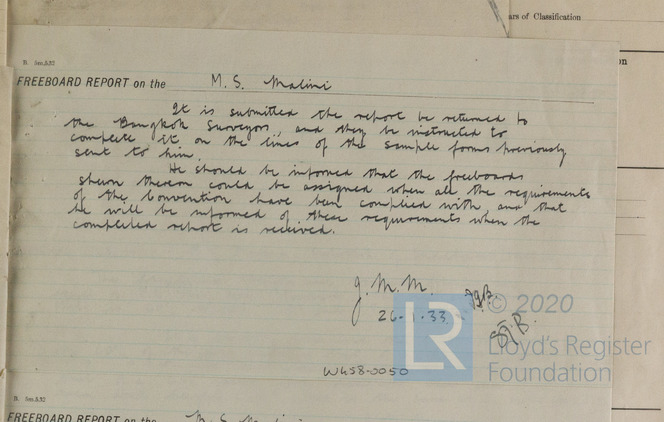 ars of Classification
on
B. 5m.5.32
FREEBOARD REPORT on the M. S. Malini
It is submitted the report be returned to
the Bangkok Surveyors, and they be instructed to
complete it on the lines of the sample forms previously
sent to him.
He should be informed that the freeboards
shewn thereon could be assigned when all the requirements
of the Convention have been complied with, and that
he will be informed of these requirements when the
completed report is received.
J. M. M.
26.1.33
LR
© 2020
Lloyd's Register
Foundation
W458-0050
B. 5m.5.32
FREEBOARD REPORT on the M. S. Malini